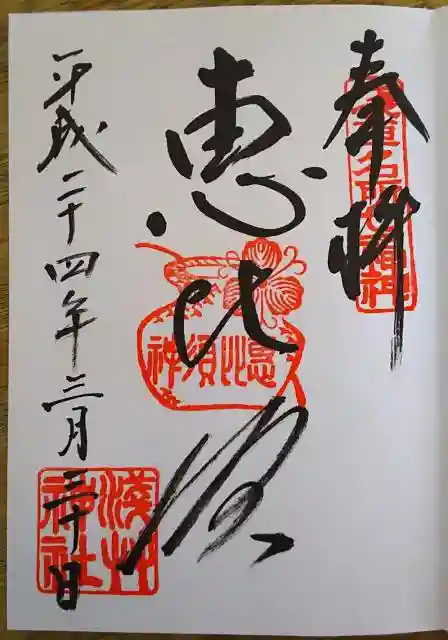 奉拝
浅草名所七福神
恵比須
惠比須神
平成二十四年三月三十日
淺草神社